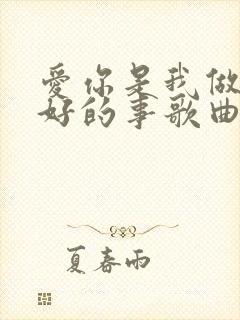 愛你是我做
好的事歌曲
夏春雨